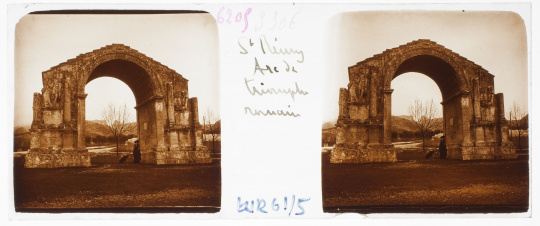 6205 3306
St Rémy
Arc de
triomphe
romain
EUR 61/5